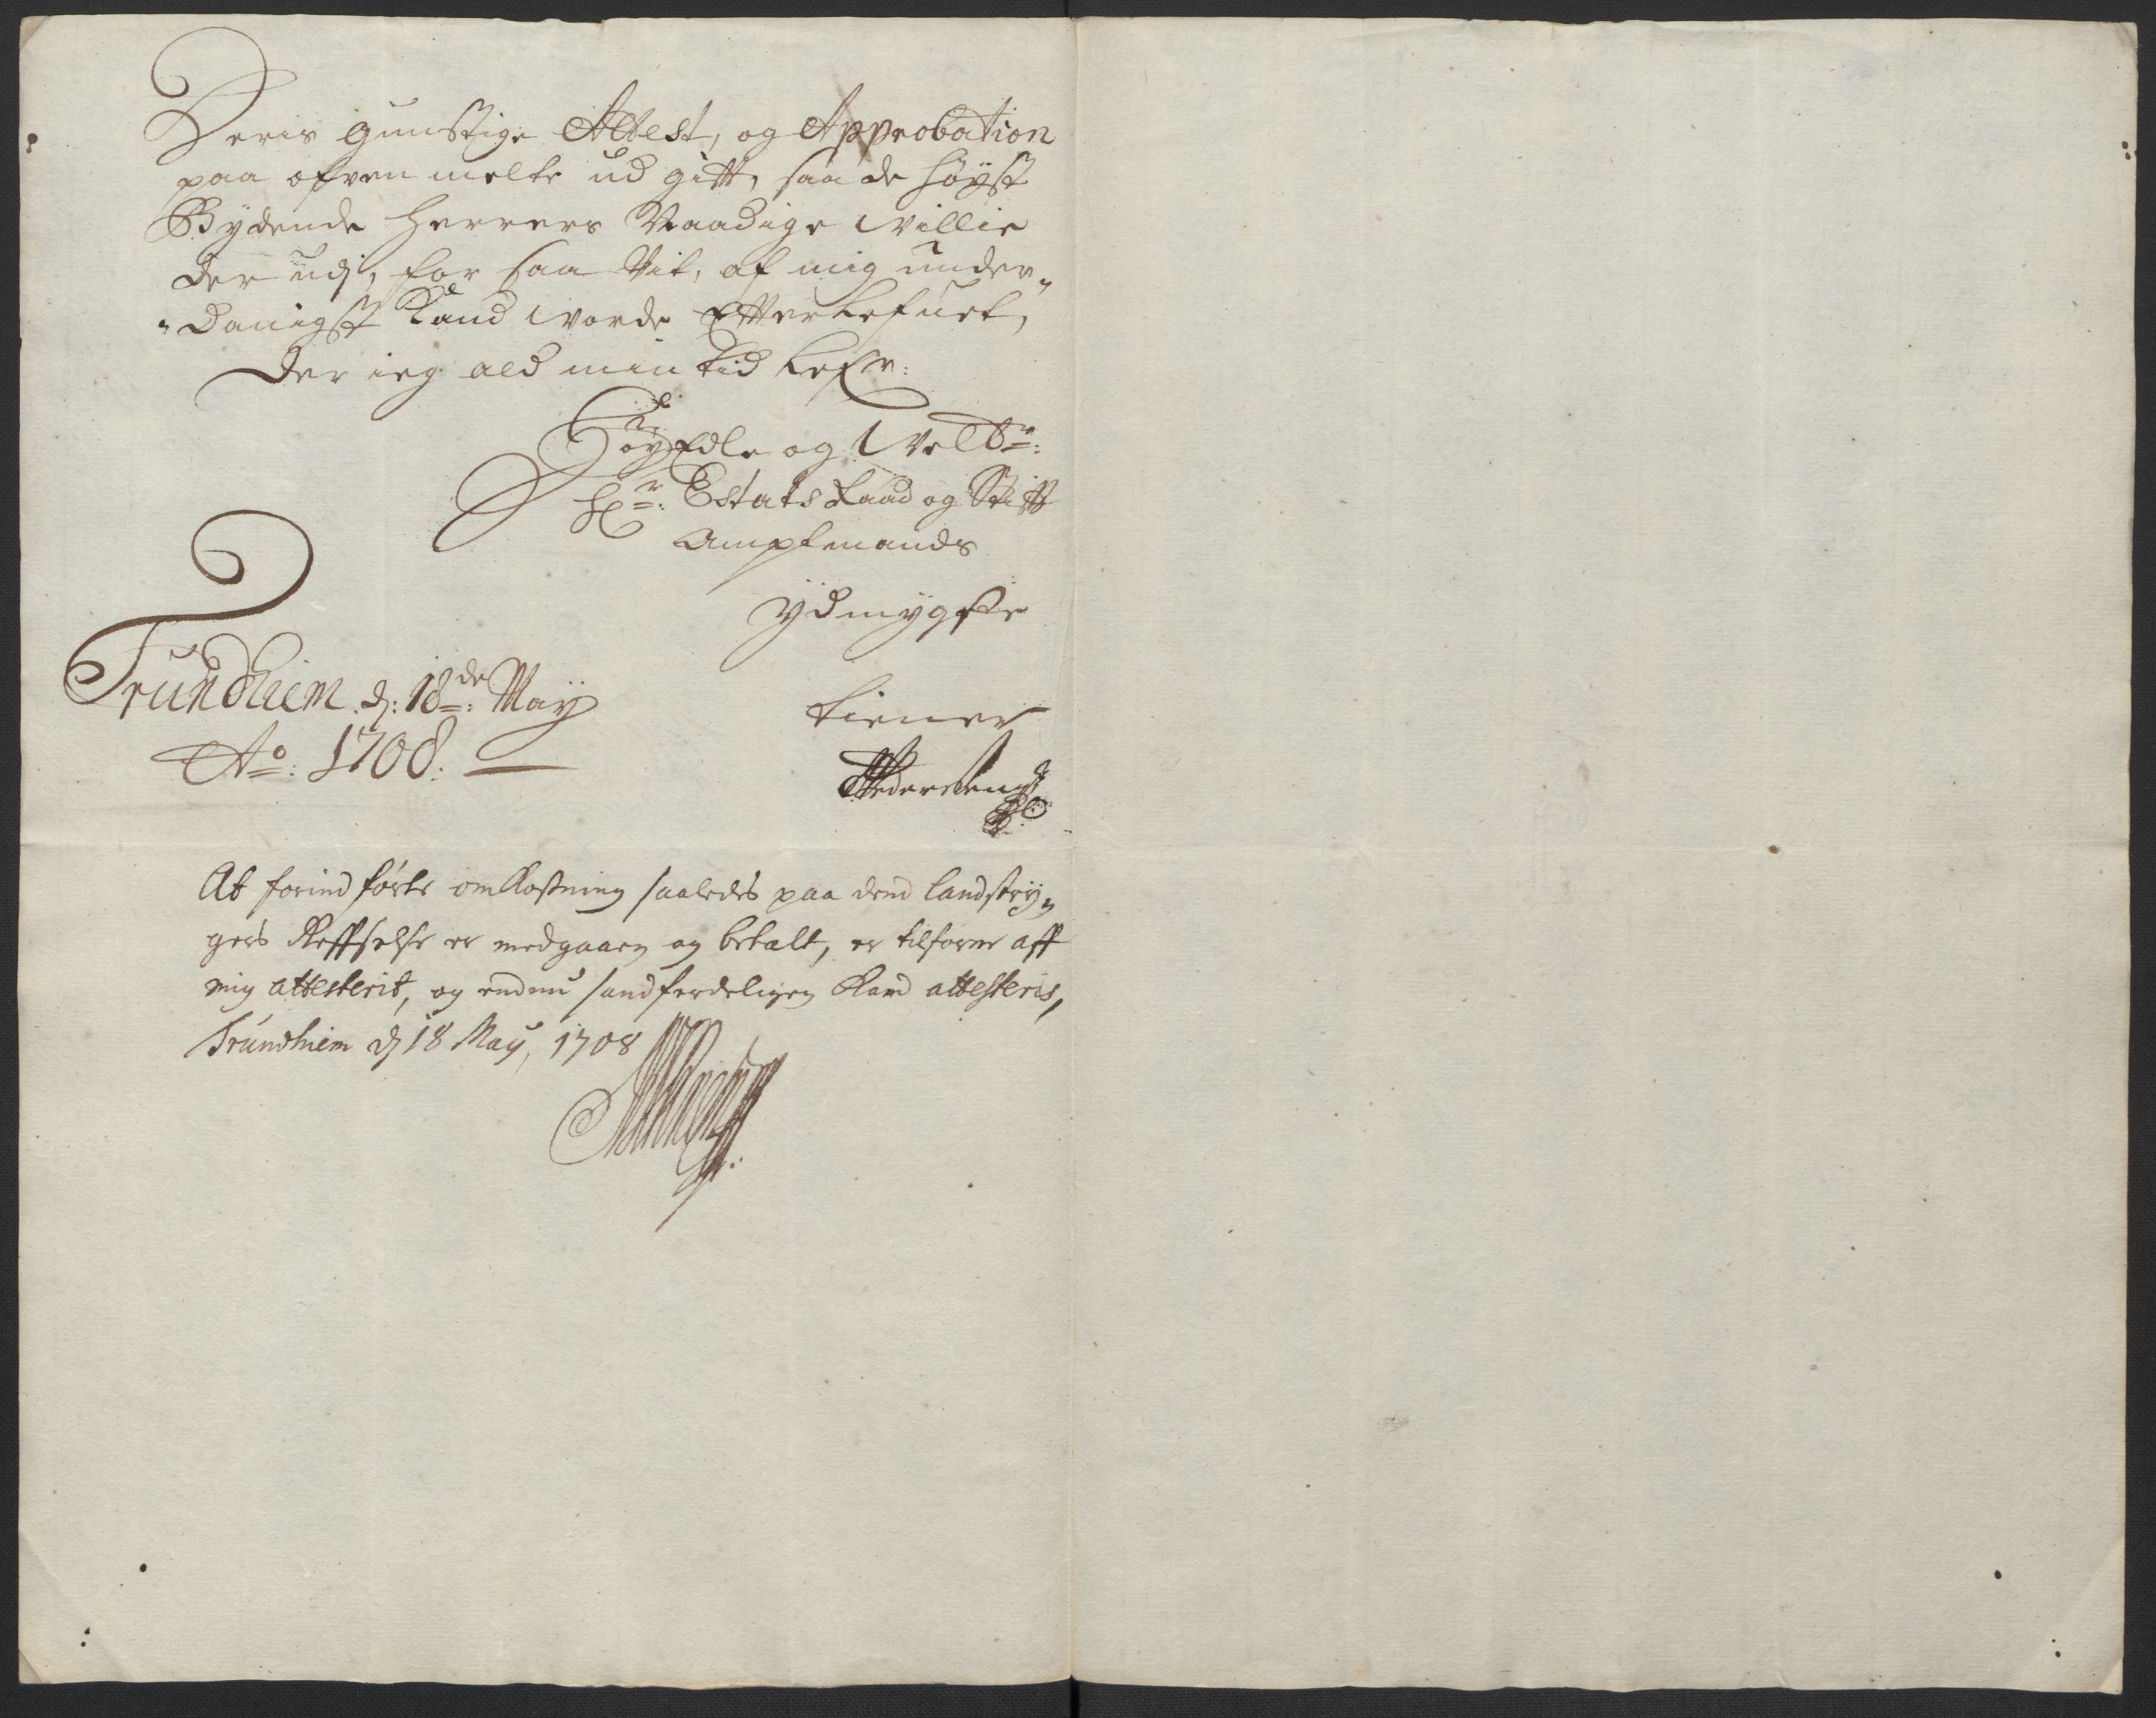 Deris gunstige Attest, og Approbation
paa ofven melte ud gift, saa de høyst
Bydende Herrers Naadige Willie
der udj, for saa vit, af mig under„
„danigst kand worde Efterlefuet,
Der ieg ald min tid lefr:
HøyEdle og Welbr:
Hr: Estats Raad og Stift
Amptmands
ydmygste
Trundhiem d: 18de: Maÿ
tienner
Ao: 1708:
At forindførte omkostning saaledes paa dend landstry„
gers Reffselse er medgaaen og betalt, er tilforne aff
mig attesterit, og endnu sandferdeligen kand attesteris,
Trundhiem d 18 May, 1708